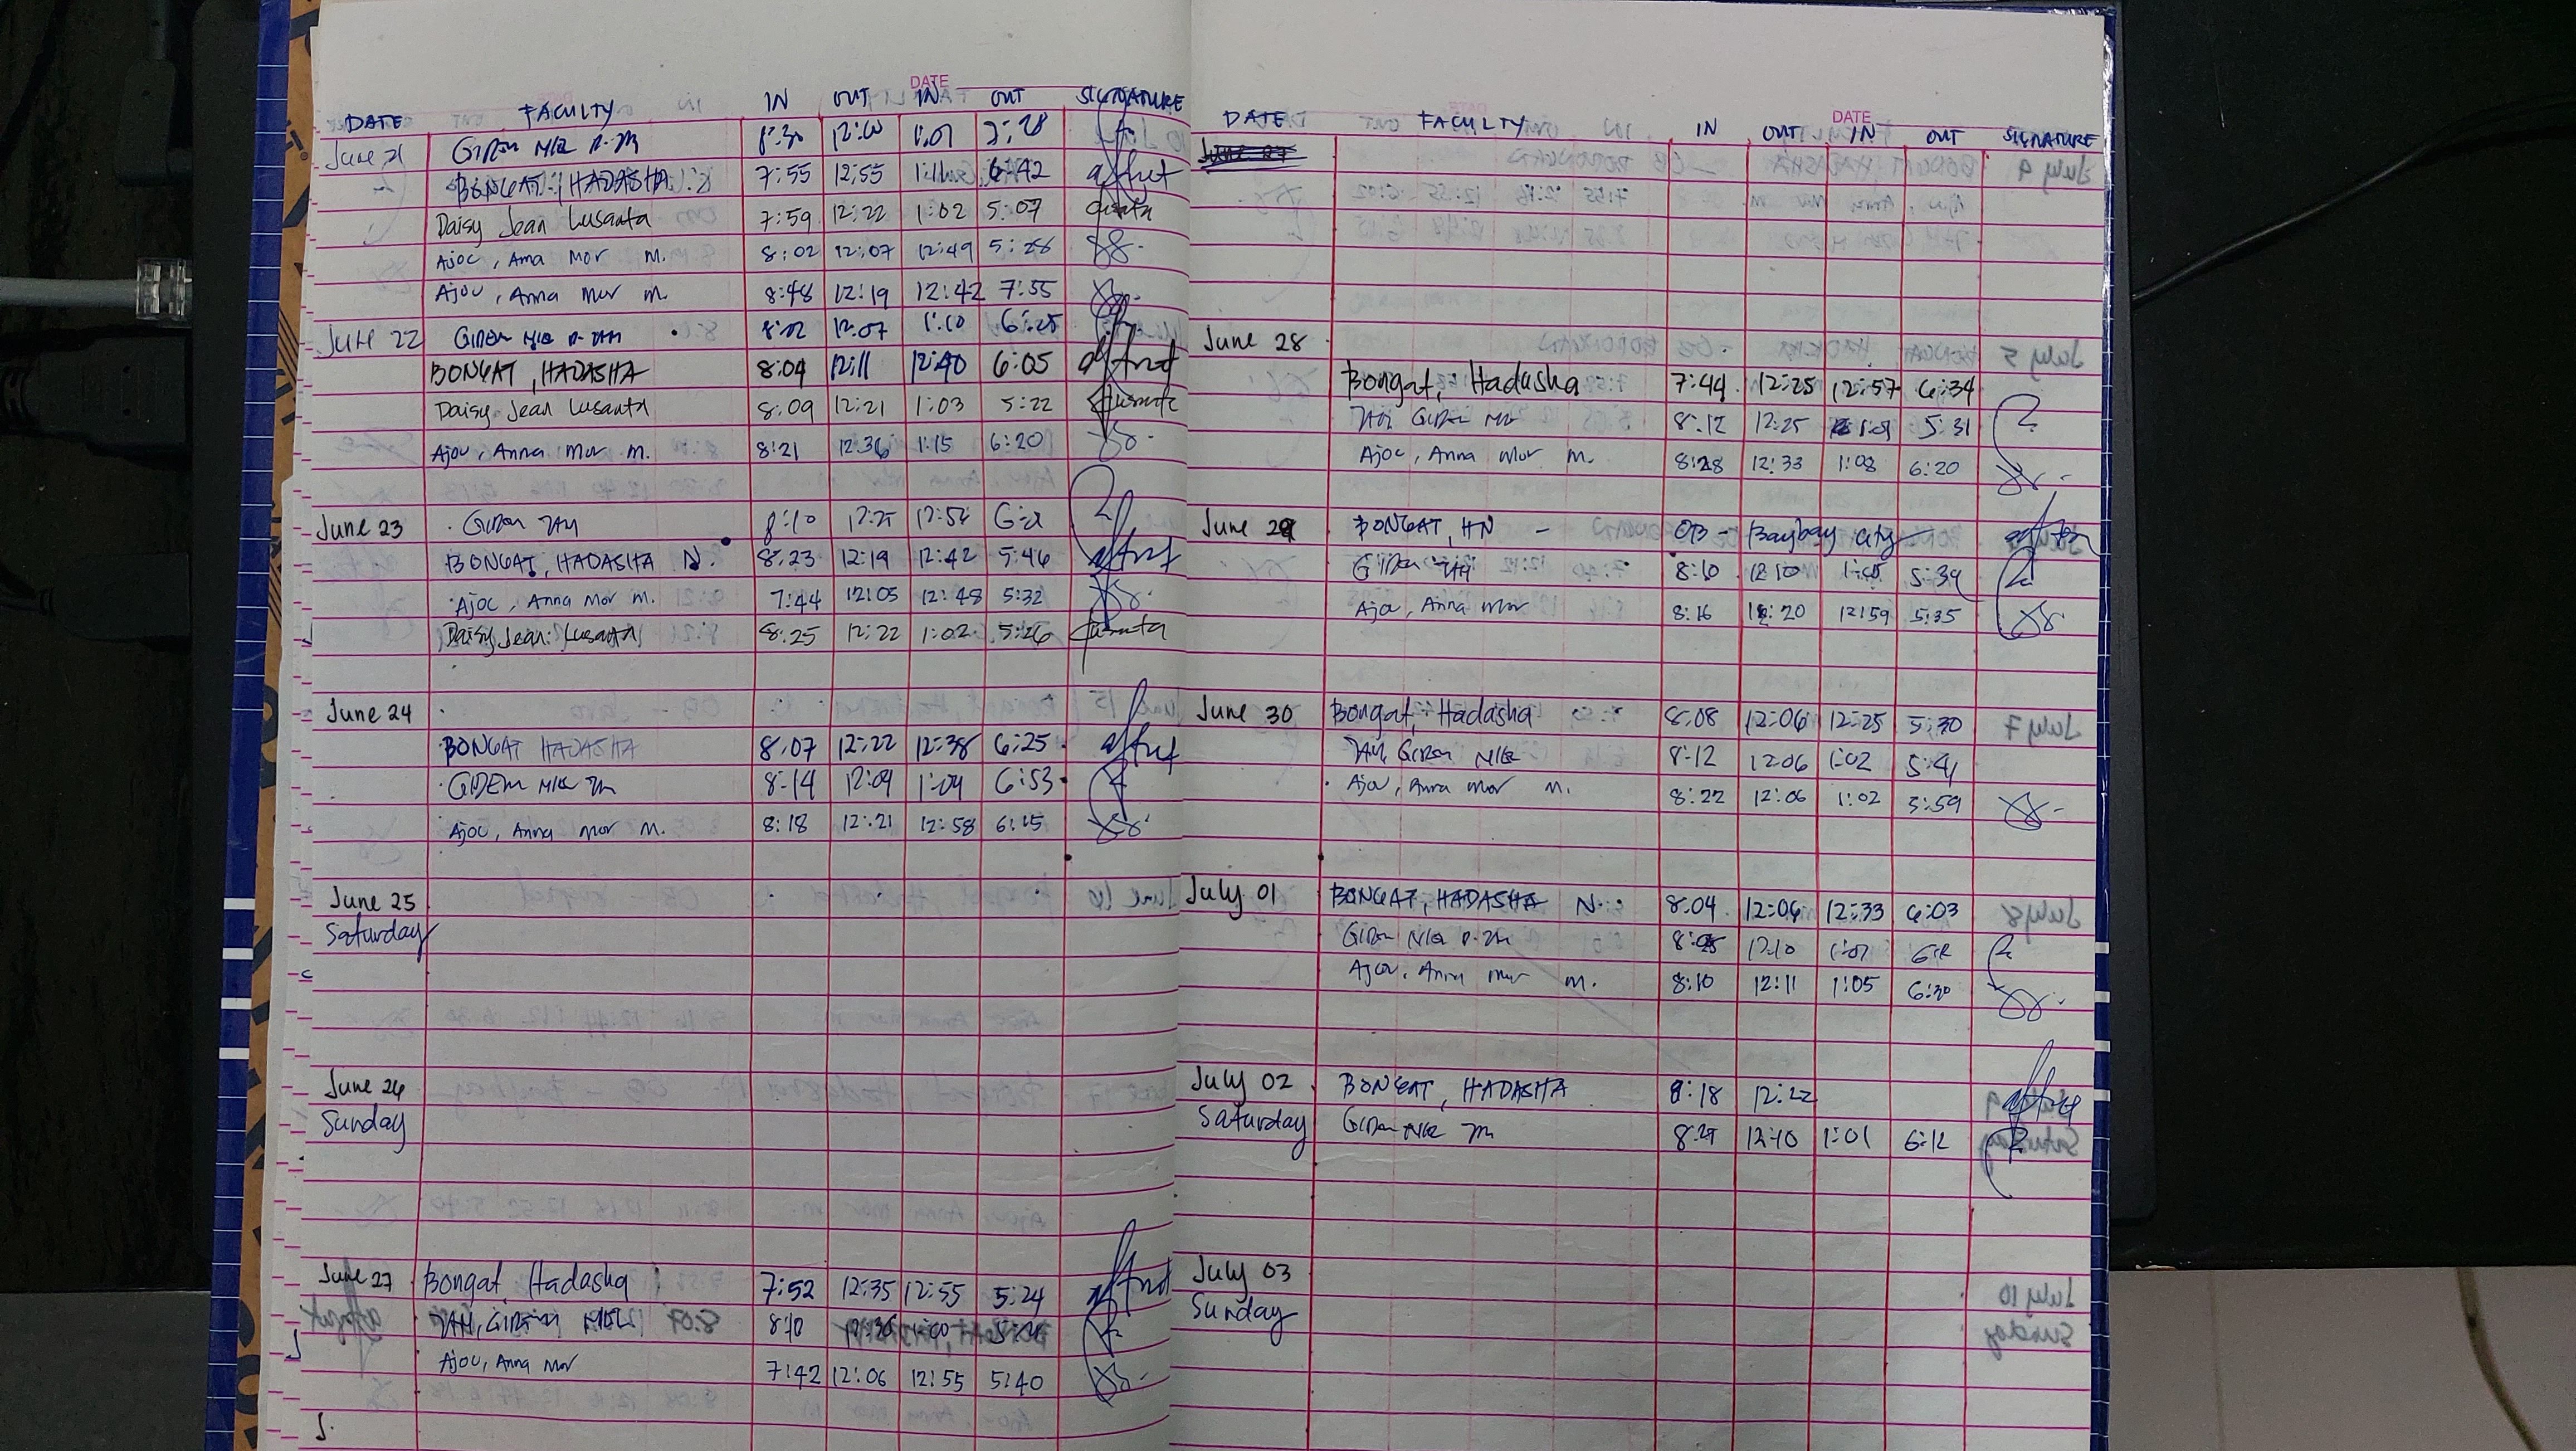 DATE
DATE FACULTY IN OUT IN OUT SIGNATURE
June 21
BONGAT, HADASHA 7:55 12:55 1:11 6:42
Daisy Jean Lusanta 7:59 12:22 1:02 5:07
Ajoc, Anna Mor M. 8:02 12:07 12:49 5:28
Ajoc, Anna Mor M. 8:48 12:19 12:42 7:55
June 22 12:07 1:10 6:25
BONGAT, HADASHA 8:04 12:11 12:40 6:05
Daisy Jean Lusanta 8:09 12:21 1:03 5:22
Ajoc, Anna Mor M. 8:21 12:36 1:15 6:20
June 23 8:10
BONGAT, HADASHA N. 8:23 12:19 12:42 5:46
Ajoc, Anna Mor M. 7:44 12:05 12:48 5:32
Daisy Jean Lusanta 8:25 12:22 1:02 5:26
June 24
BONGAT HADASHA 8:07 12:22 12:38 6:25
8:14 12:09 1:09 6:53
Ajoc, Anna Mor M. 8:18 12:21 12:58 6:15
June 25
Saturday
June 26
Sunday
June 27 Bongat, Hadasha 7:52 12:35 12:55 5:24
8:10
Ajoc, Anna Mor 7:42 12:06 12:55 5:40
DATE
DATE FACULTY IN OUT IN OUT SIGNATURE
June 27
June 28
Bongat, Hadasha 7:44 12:25 12:57 6:34
8:12 12:25 5:31
Ajoc, Anna Mor M. 8:28 12:33 1:08 6:20
June 29 BONGAT, HN - OB - Baybay City
8:10 12:10 5:39
Ajoc, Anna Mor 8:16 12:20 12:59 5:35
June 30 Bongat, Hadasha 8:08 12:06 12:25 5:30
8:12 12:06 1:02 5:41
Ajoc, Anna Mor M. 8:22 12:06 1:02 5:59
July 01 BONGAT, HADASHA N. 8:04 12:06 12:33 6:03
12:10
Ajoc, Anna Mor M. 8:10 12:11 1:05 6:30
July 02 BONGAT, HADASHA 12:22
Saturday 12:10 1:01 6:12
July 03
Sunday